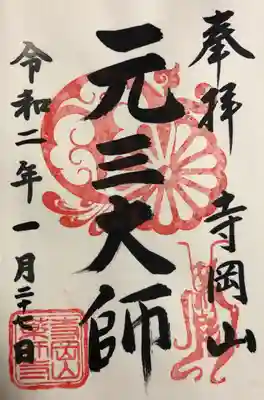 奉拝 寺岡山
元三大師
令和二年一月二十七日